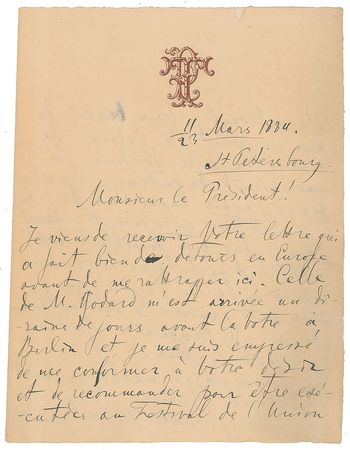 11/23 Mars 1884.
St Petersbourg.
Monsieur le Président!
Je viens de recevoir Votre lettre qui
a fait bien de détours en Europe
avant de me rattrapper ici. Celle
de M. Godard m'est arrivée un di-
zaine de jours avant la Votre à
Berlin et je me suis empressé
de me conformer à Votre désir
et de recommander pour être exé-
cutées au Festival de l'Union